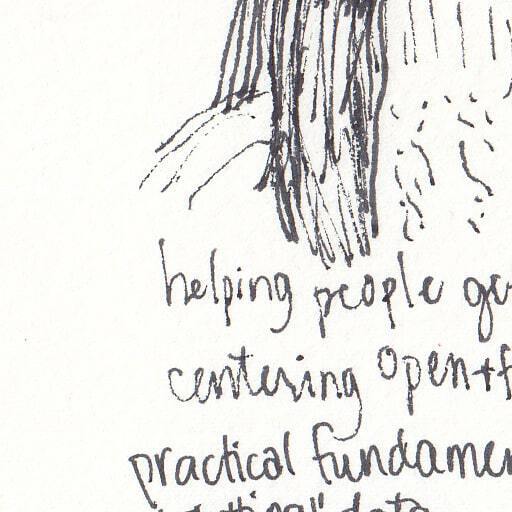 helping people ge
centering open+f
practical fundamen
data